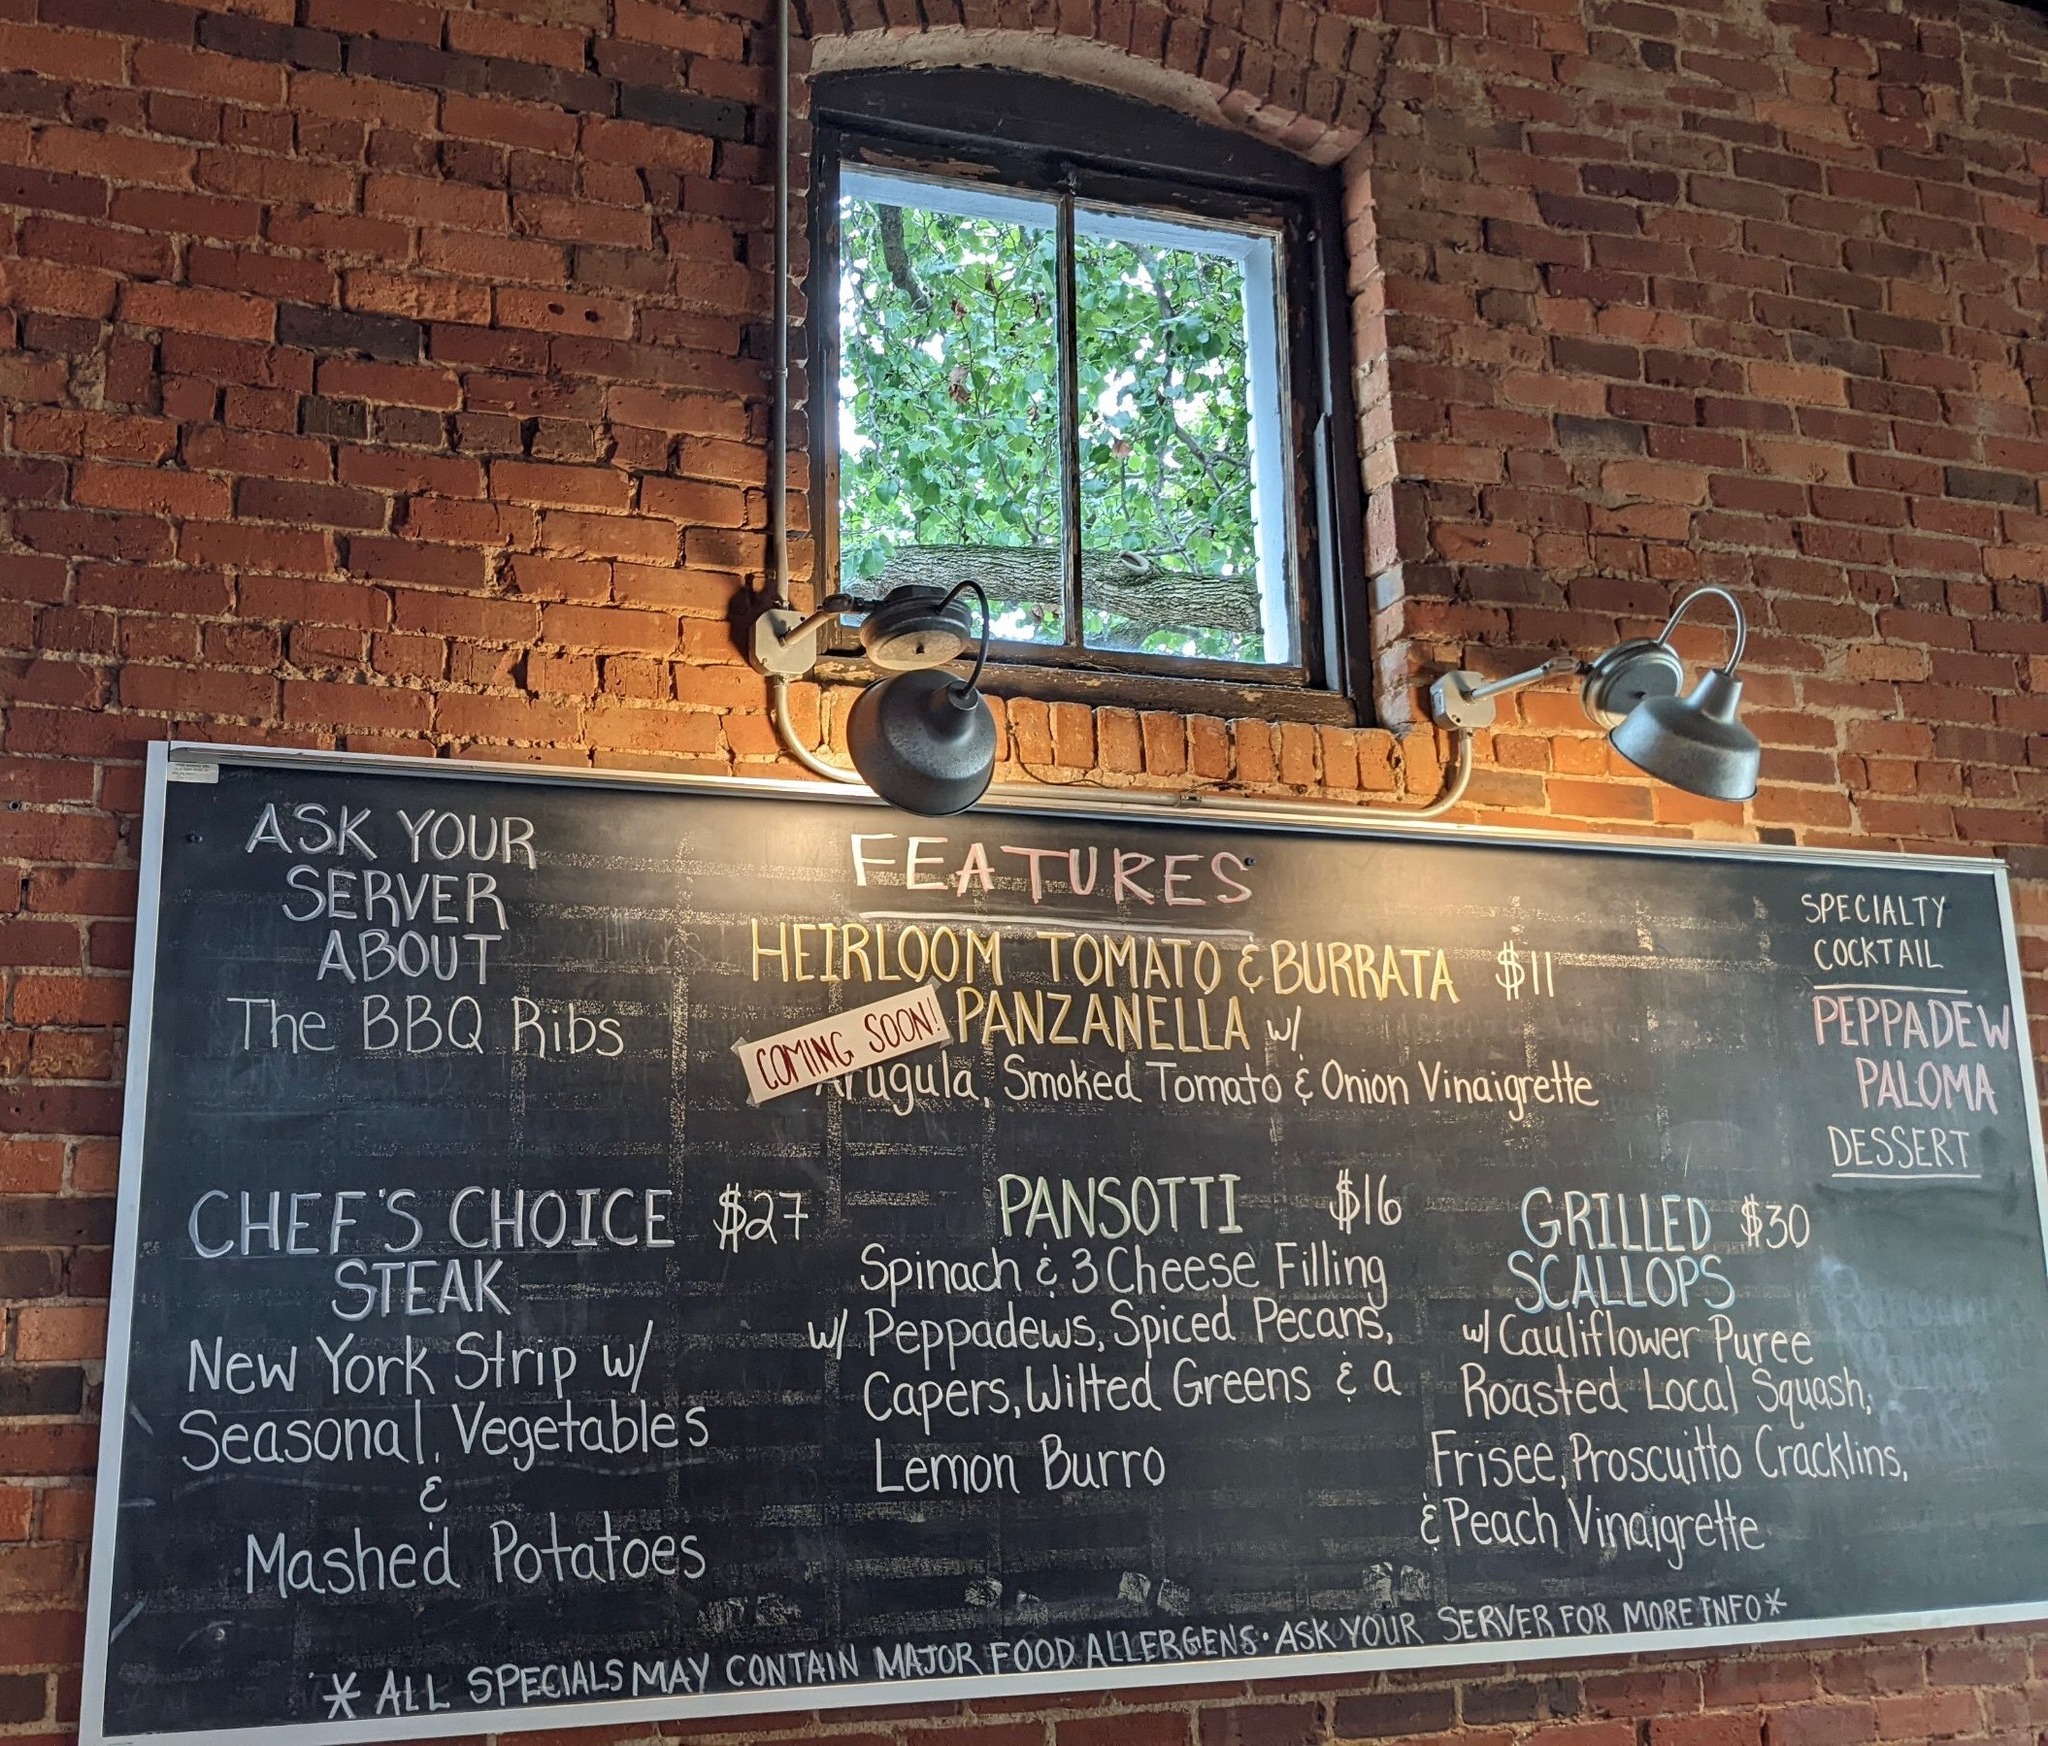 ASK YOUR
SERVER
ABOUT
The BBQ Ribs
FEATURES
HEIRLOOM TOMATO & BURRATA $11
COMING SOON!
PANZANELLA w/
Arugula, Smoked Tomato & Onion Vinaigrette
SPECIALTY
COCKTAIL
PEPPADEW
PALOMA
DESSERT
CHEF'S CHOICE $27
STEAK
New York Strip w/
Seasonal Vegetables
&
Mashed Potatoes
PANSOTTI $16
Spinach & 3 Cheese Filling
w/ Peppadews, Spiced Pecans,
Capers, Wilted Greens & a
Lemon Burro
GRILLED $30
SCALLOPS
w/ Cauliflower Puree
Roasted Local Squash,
Frisee, Proscuitto Cracklins,
& Peach Vinaigrette
* ALL SPECIALS MAY CONTAIN MAJOR FOOD ALLERGENS · ASK YOUR SERVER FOR MORE INFO *